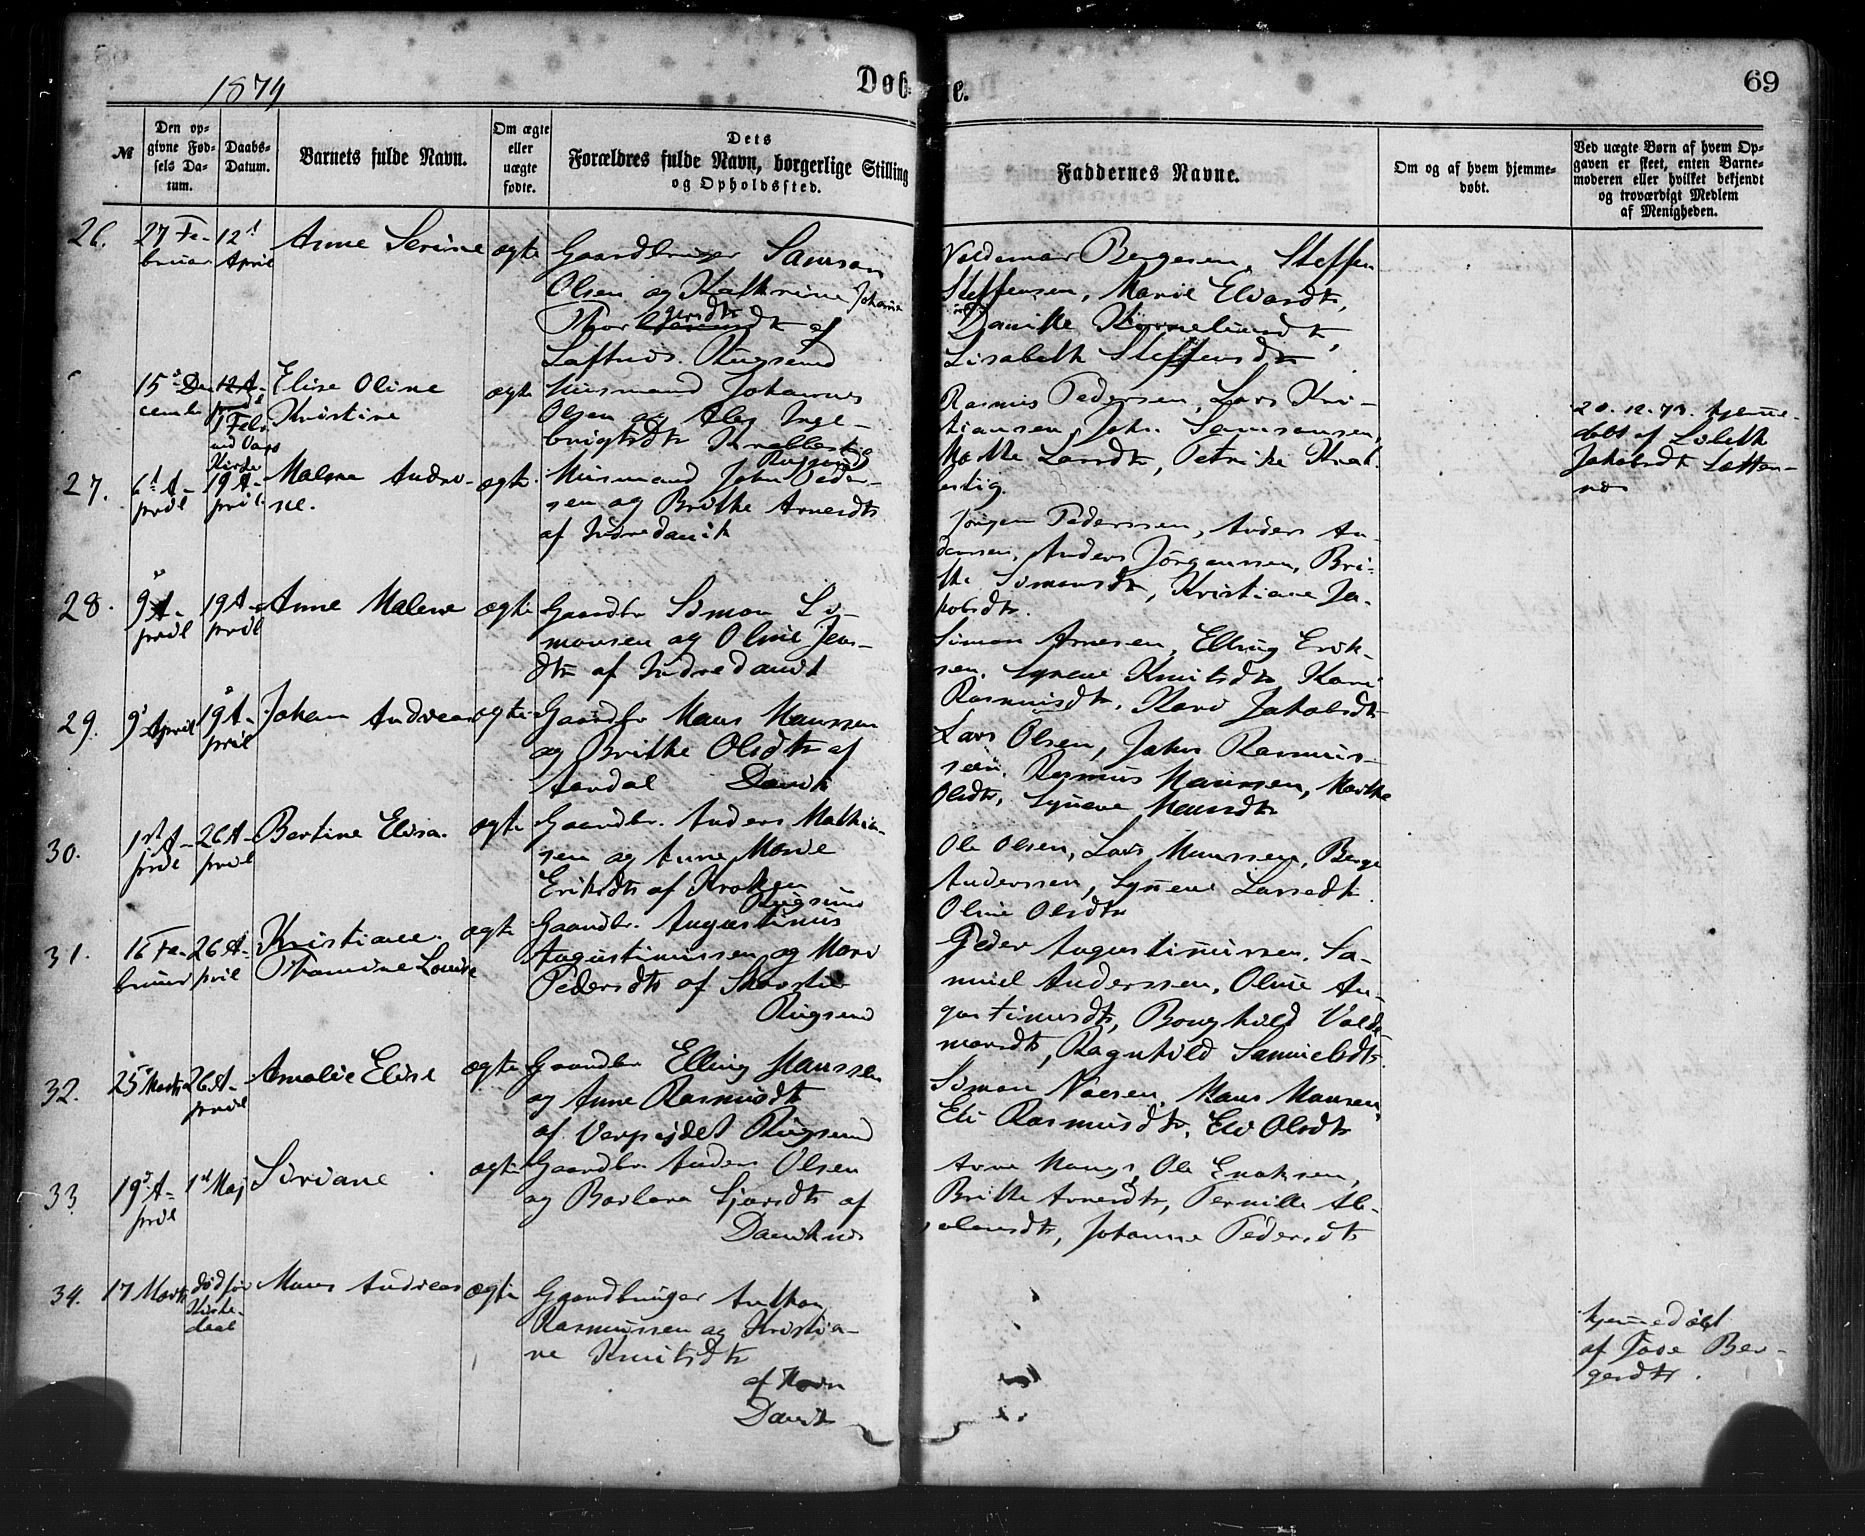 1874
Døbte.
69
№
Den opgivne Fødsels Datum.
Daabs-Datum.
Barnets fulde Navn.
Om ægte eller uægte fødte.
Dets Forældres fulde Navn, borgerlige Stilling og Opholdssted.
Faddernes Navne.
Om og af hvem hjemmedøbt.
Ved uægte Børn af hvem Opgaven er skeet, enten Barnemoderen eller hvilket bekjendt og troværdigt Medlem af Menigheden.
26.
27 Fe-
bruar
12te
April
Anne Serine
ægte
Gaardbruger Samson
Olsen og Kathrine Johanne
Thor
gersdtr
af
Rugsund
Valdemar Bergesen, Steffen
Steffensen, Marie Elvardtr,
Danikke Korneliusdtr,
Lisabeth Steffensdtr
15de De-
cembr
12 A-
1 Febr
ved Vaags
Kirke
Elise Oline
Kristine
ægte
Husmand Johannes
Olsen og Aleg Inge-
brigtsdtr
Rugsund
Rasmus Pedersen, Lars Kri-
stiansen, Joh. Samsonsen,
Marthe Larsdtr, Petrike
20.12.73. hjemme-
døbt af Lisbeth
Jakobsdtr
27.
6te A-
pril
19 A-
pril
Malene Andri-
ne.
ægte
Husmand John Peder-
sen og Brithe Arnesdtr
af Indredavik
Jørgen Pederssen, Anders An-
derssen, Anders Jørgenssen, Bri-
the Simonsdtr, Kristiane Ja-
kobsdtr.
28.
9 A-
pril
19 A-
pril
Anne Malene
ægte
Gaardbr Simon Si-
monsen og Oline Jens-
dtr af Indredavik
Simon Arnesen, Elling Erik-
sen, Synneve Knutsdtr, Kari
Rasmusdtr, Kari Jakobsdtr
29.
9de April
19 A-
pril
Johan Andreas
ægte
Gaardbr Mons Monssen
og Brithe Olsdtr af
Aardal Davik
Lars Olsen, Jakob Rasmus-
sen, Rasmus Monssen, Marthe
Olsdtr, Synneve Monsdtr
30.
1st A-
pril
26 A-
pril
Bertine Elisa.
ægte
Gaardbr. Anders Mathia-
sen og Anne Marie
Eriksdtr af Kroken
Rugsund
Ole Olsen, Lars Monssen, Berge
Anderssen, Synneve Larsedtr.
Oline Olsdtr
31.
16 Fe-
bruar
26 A-
pril
Kristiane
Thomine Louise
ægte
Gaardbr. Augustinus
Augustinussen og Mari
Pedersdtr af
Rugsund
Peder Augustinussen, Sa-
muel Anderssen, Oline Au-
gustinusdtr, Borghild Valde-
marsdtr, Ragnhild Samuelsdtr
32.
25de Marts
26 A-
pril
Amalie Elise
ægte
Gaardbr Elling Monssen
og Anne Rasmusdtr
af Verpejdet Rugsund
Simon Monsen,
Eli Rasmusdtr, Eli Olsdtr
33.
19de A-
pril
1st Maj
Siriane
ægte
Gaardbr. Anders Olsen
og Barbara Sjursdtr af
Daviknes
Arne Mongs, Ole Enoksen,
Brithe Arnesdtr, Pernille Ab-
salonsdtr, Johanne Pedersdtr
34.
17 Marts
død før
Kirke-
daab
Mons Andreas
ægte
Gaardbruger Anthon
Rasmussen og Kristia-
ne Knutsdtr
af
Davik
hjemmedøbt
af Tove Ber-
gesdtr.